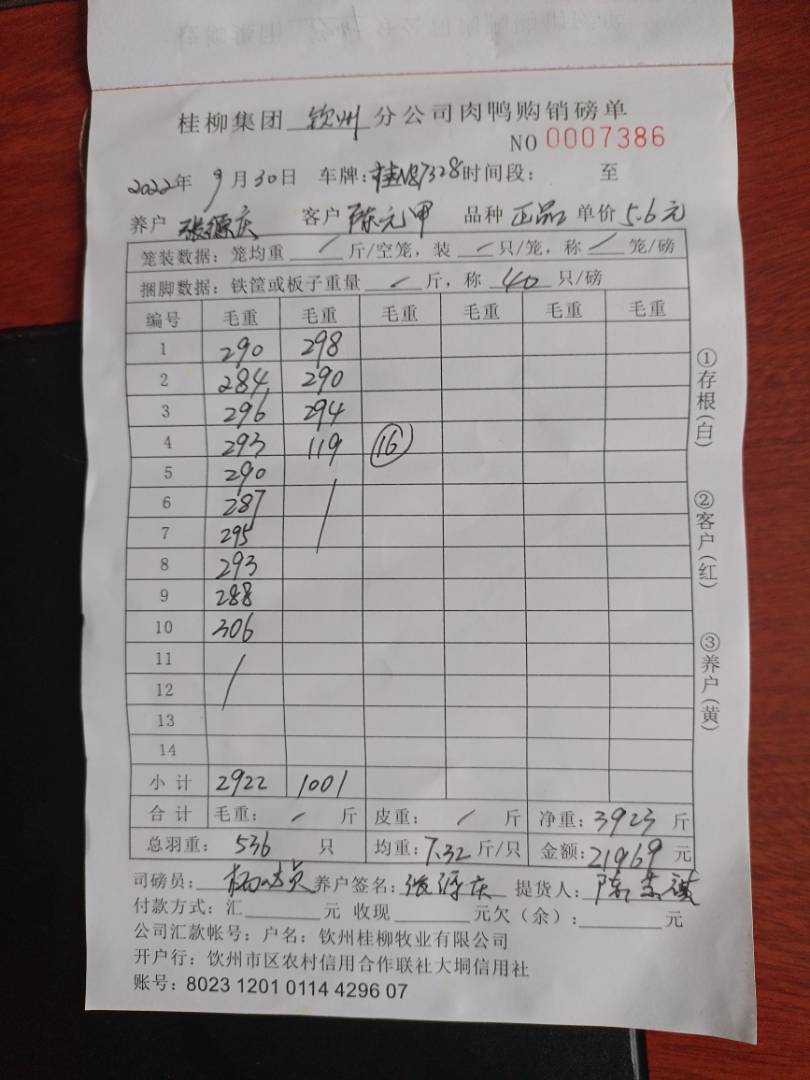 桂柳集团 钦州 分公司肉鸭购销磅单
NO 0007386
2022年 9月30日 车牌:桂N87328 时间段: 至
养户 张源庆 客户 陈元甲 品种 正品 单价 5.6元
笼装数据: 笼均重 / 斤/空笼, 装 / 只/笼, 称 / 笼/磅
捆脚数据: 铁筐或板子重量 / 斤, 称 40 只/磅
编号 毛重 毛重 毛重 毛重 毛重 毛重
1 290 298
2 284 290
3 296 294
4 293 119 16
5 290 /
6 287
7 295
8 293
9 288
10 306
11 /
12
13
14
小计 2922 1001
合计 毛重: / 斤 皮重: / 斤 净重: 3923 斤
总羽重: 536 只 均重: 7.32 斤/只 金额: 21969 元
司磅员: 养户签名: 张源庆 提货人: 陈
付款方式: 汇 元 收现 元欠(余): 元
公司汇款帐号: 户名: 钦州桂柳牧业有限公司
开户行: 钦州市区农村信用合作联社大垌信用社
账号: 8023 1201 0114 4296 07
①存根(白)
②客户(红)
③养户(黄)